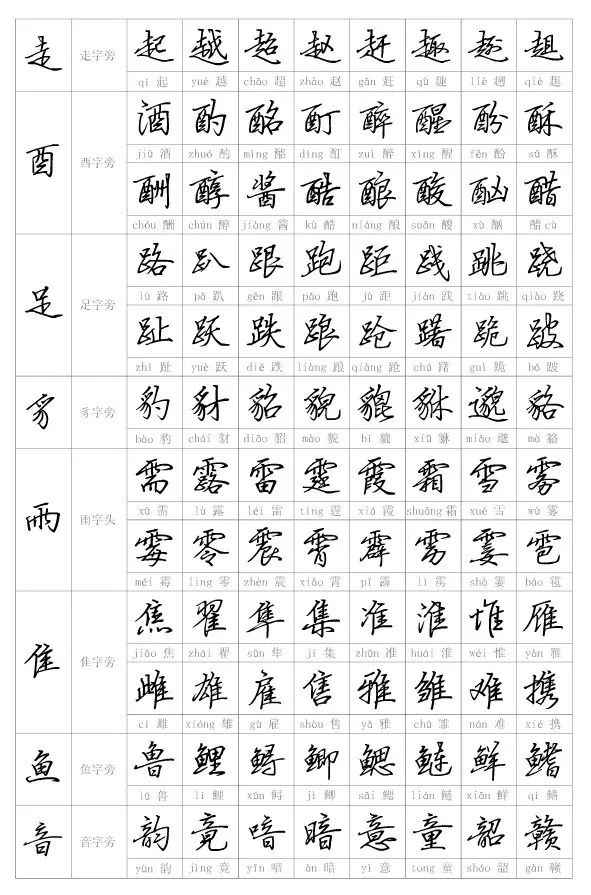 走 走字旁 起 越 超 赵 赶 趣 趔 趄
qǐ 起 yuè 越 chāo 超 zhào 赵 gǎn 赶 qù 趣 liè 趔 qiè 趄
酉 酉字旁 酒 酌 酩 酊 醉 醒 酚 酥
jiǔ 酒 zhuó 酌 mǐng 酩 dǐng 酊 zuì 醉 xǐng 醒 fēn 酚 sū 酥
酬 醇 酱 酷 酿 酸 酗 醋
chóu 酬 chún 醇 jiàng 酱 kù 酷 niáng 酿 suān 酸 xù 酗 醋 cù
足 足字旁 路 趴 跟 跑 距 践 跳 跷
lù 路 pā 趴 gēn 跟 pǎo 跑 jù 距 jiàn 践 tiào 跳 qiāo 跷
趾 跃 跌 踉 跄 躇 跪 跛
zhǐ 趾 yuè 跃 diē 跌 liàng 踉 qiàng 跄 chú 躇 guì 跪 bǒ 跛
豸 豸字旁 豹 豺 貂 貌 貔 貅 邈 貉
bào 豹 chái 豺 diāo 貂 mào 貌 pí 貔 xiū 貅 miǎo 邈 貉
雨 雨字头 需 露 雷 霆 霞 霜 雪 雾
xū 需 lù 露 léi 雷 tíng 霆 xiá 霞 shuāng 霜 xuě 雪 wù 雾
霉 零 震 霄 霹 雳 霎 雹
méi 霉 líng 零 zhèn 震 xiāo 霄 pī 霹 lì 雳 shà 霎 báo 雹
隹 隹字旁 焦 翟 隼 集 准 淮 惟 雁
jiāo 焦 zhái 翟 sǔn 隼 jí 集 zhǔn 准 huái 淮 wéi 惟 yàn 雁
雌 雄 雇 售 雅 雏 难 携
cí 雌 xióng 雄 gù 雇 shòu 售 yǎ 雅 chú 雏 nán 难 xié 携
鱼 鱼字旁 鲁 鲤 鲟 鲫 鳃 鲢 鲜 鳍
lǔ 鲁 lǐ 鲤 xún 鲟 jì 鲫 sāi 鳃 lián 鲢 xiān 鲜 qí 鳍
音 音字旁 韵 竟 喑 暗 意 童 韶 赣
yùn 韵 jìng 竟 yīn 喑 àn 暗 yì 意 tong 童 sháo 韶 gàn 赣